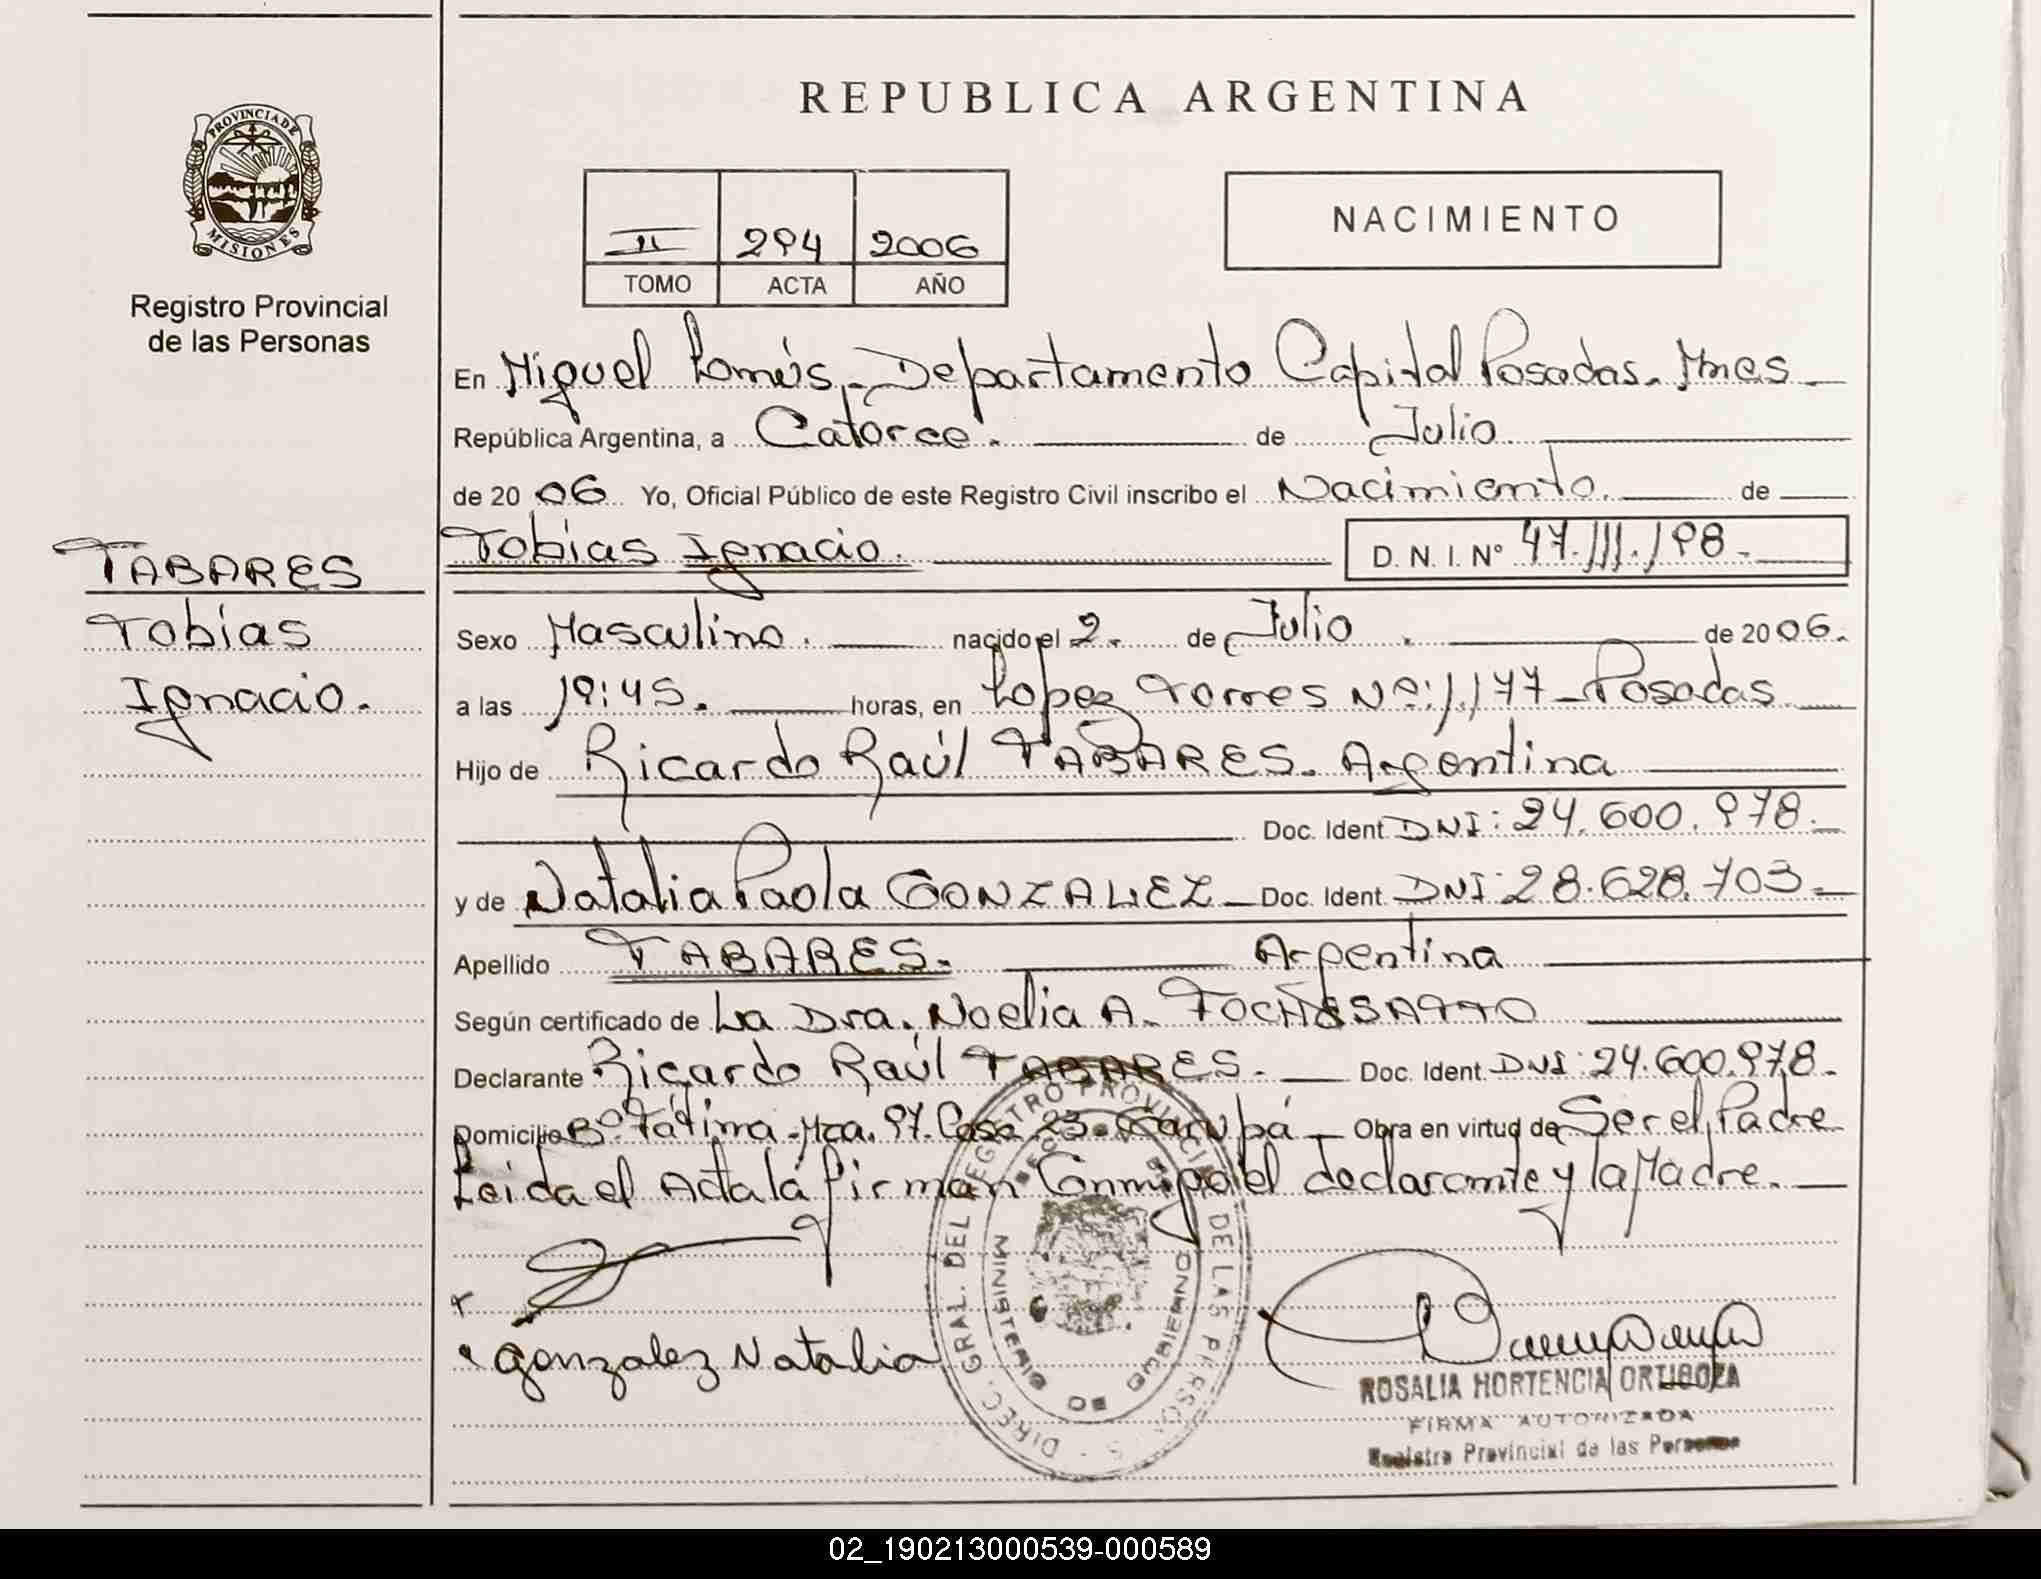 REPUBLICA ARGENTINA
PROVINCIA DE MISIONES
Registro Provincial
de las Personas
II 294 2006
TOMO ACTA AÑO
NACIMIENTO
En Miguel Lanús.- Departamento Capital Posadas. Mnes
República Argentina, a Catorce. de Julio
de 2006 Yo, Oficial Público de este Registro Civil inscribo el Nacimiento. de
TABARES
Tobias
Ignacio.
Tobias Ignacio. D. N. I. Nº 47.111.198.-
Sexo Masculino. nacido el 2. de Julio . de 2006.
a las 19:45. horas, en Lopez Torres Nº: 1.177 - Posadas
Hijo de Ricardo Raúl TABARES. Argentina
Doc. Ident. DNI: 24.600.978.
y de Natalia Paola GONZALEZ - Doc. Ident. DNI: 28.628.703-
Apellido TABARES. Argentina
Según certificado de La Dra. Noelia A.
Declarante Ricardo Raúl TABARES. Doc. Ident. DNI: 24.600.978.
Domicilio Bº Fátima - Mza. 97. Casa 23 - Garupá - Obra en virtud de Ser el Padre
Leida el Acta la firman Conmigo el declarante y la Madre.
Gonzalez Natalia
DIREC. GRAL. DEL REGISTRO PROVINCIAL DE LAS PERSONAS
MINISTERIO DE GOBIERNO
ROSALIA HORTENCIA ORTIGOZA
FIRMA AUTORIZADA
Registro Provincial de las Personas
02_190213000539-000589